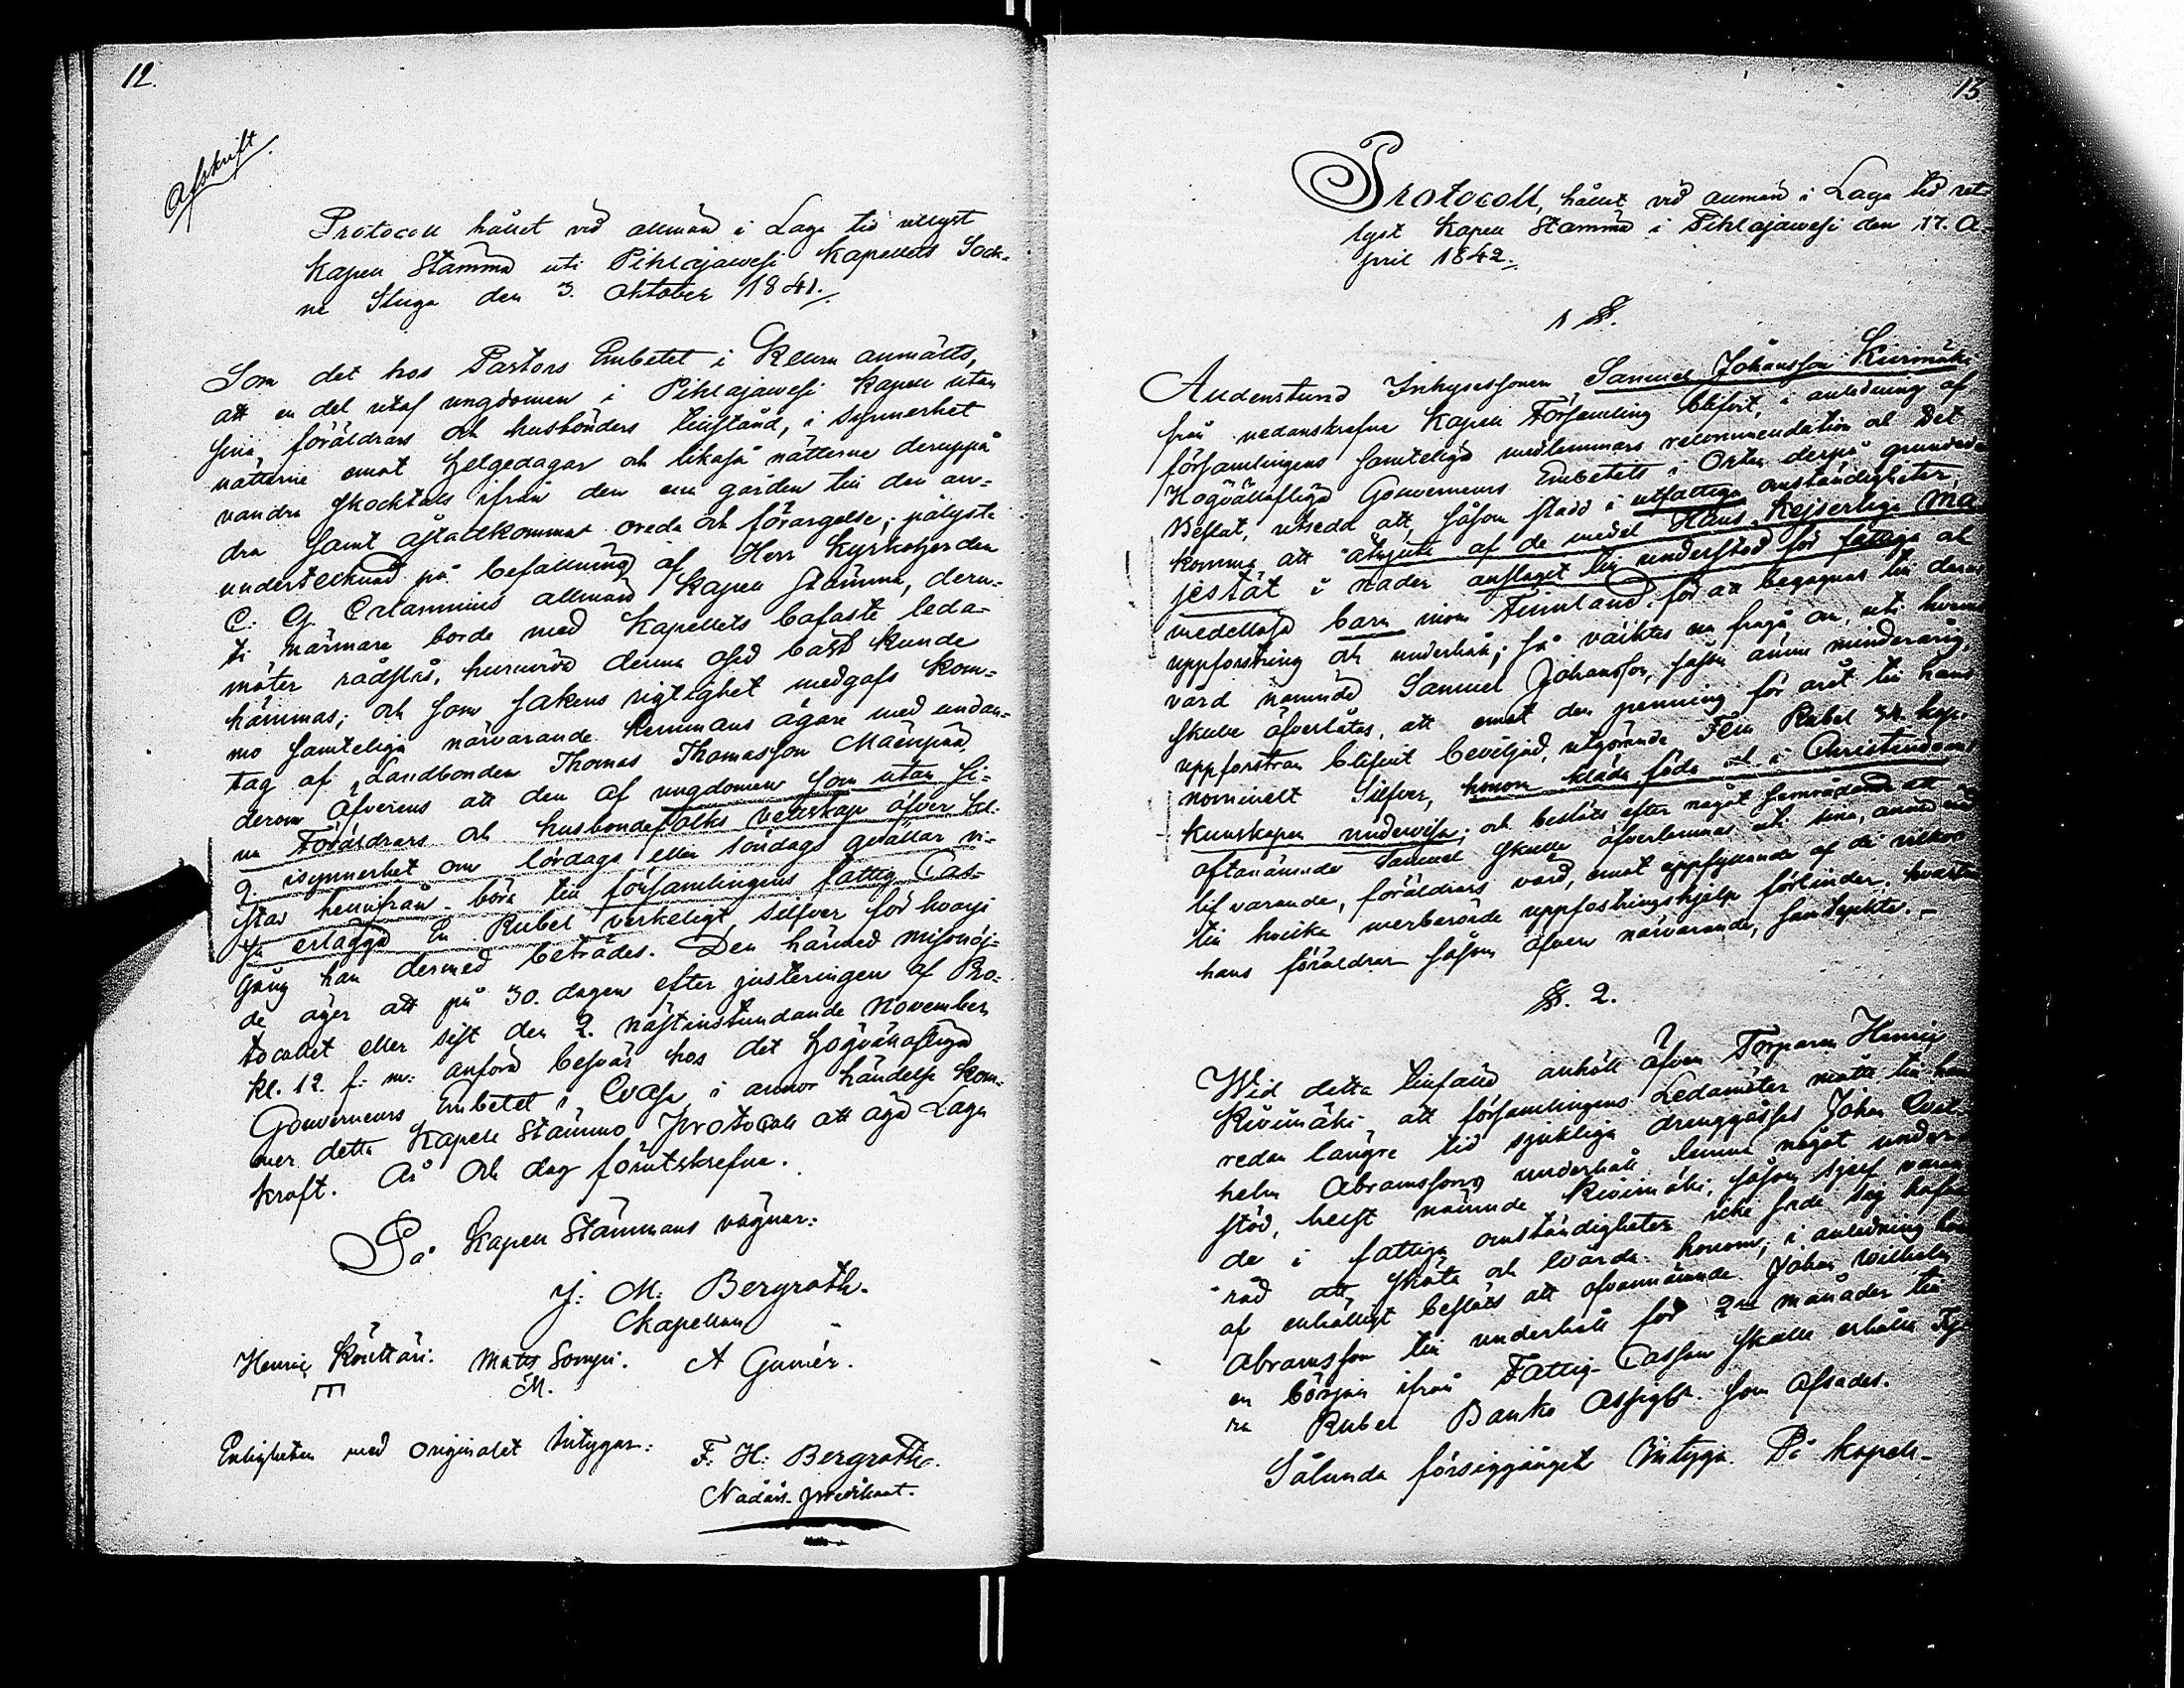 12.
Afskrift.
Protocoll hållet vid allmän i Laga tid utlyst
Kapell Stämma uti Pihlajawesi Kapellets Sock-
ne Stuga den 3. Oktober 1841.
Som det hos Pastors Embetet i Keuru anmälts,
att en del utaf ungdomen i Pihlajawesi Kapell utan
sina föräldrars och husbönders tillstånd, i synnerhet
nätterne emot helgedagar och likaså nätterne deruppå
vandra skocktals ifrån den ena gården till den an-
dra samt åstadkommer oreda och förargelse; pålyste
undertecknad på befallning af Herr Kyrkoherden
C. G. Calamnius allmän Kapell stämma, deru-
ti närmare borde med Kapellets bofaste leda-
möter rådslås, huruvida denna osed bäst kunde
hämmas; och som sakens rigtighet medgafs kom-
mo samteliga närvarande hemmans ägare med undan-
tag af Landbonden Thomas Thomasson Mäenpää
derom öfverens att den af ungdomen som utan si-
na Föräldrars och husbondefolks vettskap öfver kl.
9. isynnerhet om lördags eller söndags qvällar vi-
stas hemifrån böra till församlingens fattig Cas-
sa erlägga En Rubel verkeligt silfver för hvarje
gång han dermed beträdes. Den härmed missnöj-
de äger att på 30. dagen efter justeringen af Pro-
tocollet eller sist den 2. nästinstundande November
kl. 12. f: m: anföra besvär hos det högvällofliga
Gouverneurs Embetet i Wasa i annor händelse kom-
mer detta Kapell Stämmo Protocoll att äga Laga
kraft. År och dag förutskrefne.
På Kapell Stämmans vägnar:
J: M: Bergroth.
Kapellan
Henric Könttäri. Matts Sompi. A Gumér.
M.
Enligheten med Originalet intygar:
F: H: Bergroth.
Nådårs-predikant.
13
Protocoll, hållit vid allmän i Laga tid ut-
lyst Kapell Stämma i Pihlajawesi den 17. A-
pril 1842.
1 §.
Alldenstund Inhysessonen Samuel Johansson Kivimäki
från nedanskrefne Kapell Församling blifvit, i anledning af
församlingens samteliga medlemmars recommendation och Det
Högvällofliga Gouverneurs Embetets i Orten derpå grundade
Beslut, utsedd att, såsom stadd i utfattiga omständigheter,
komma att åtnjuta af de medel Hans Kejserliga Ma-
jestät i nåder anslaget till understöd för fattiga och
medellösa barn inom Finnland, för att begagnas till deras
uppfostring och underhåll; så väcktes nu fråga om, uti hvems
vård nämnde Samuel Johansson, såsom ännu minderårig,
skulle öfverlåtas, att emot den penning för året till hans
uppfostran blifvit beviljad, utgörande Fem Rubel kop.
nominelt Silfver, honom kläda föda och i Christendoms
kunskapen undervisa; och beslöts efter något samrådande att
oftanämnde Samuel skulle öfverlemnas uti sina, ännu vid
lif varande, föräldrars vård, emot uppfyllande af de villkor
till hvilka merberörde uppfostringshjelp förbinder, hvartill
hans föräldrar såsom äfven närvarande, samtyckte. -
§. 2.
Wid detta tillfälle anhöll äfven Torparen Henric
Kivimäki, att församlingens Ledamöter måtte till han
redan längre tid sjukliga drenggosses Johan Wil-
helm Abramssons underhåll lemna något under-
stöd, helst nämnde Kivimäki, såsom sjelf varan-
de i fattiga omständigheter icke sade sig hafva
råd att sköta och vårda honom; i anledning här-
af enhälligt beslöts att ofvannämnde Johan Wilhelm
Abramsson till underhåll för 2ne månader till
en början ifrån Fattig-Cassan skulle erhålla Fy-
ra Rubel Banko Assigt. som afsades.
Sålunda försiggånget Intyga. På Kapell-